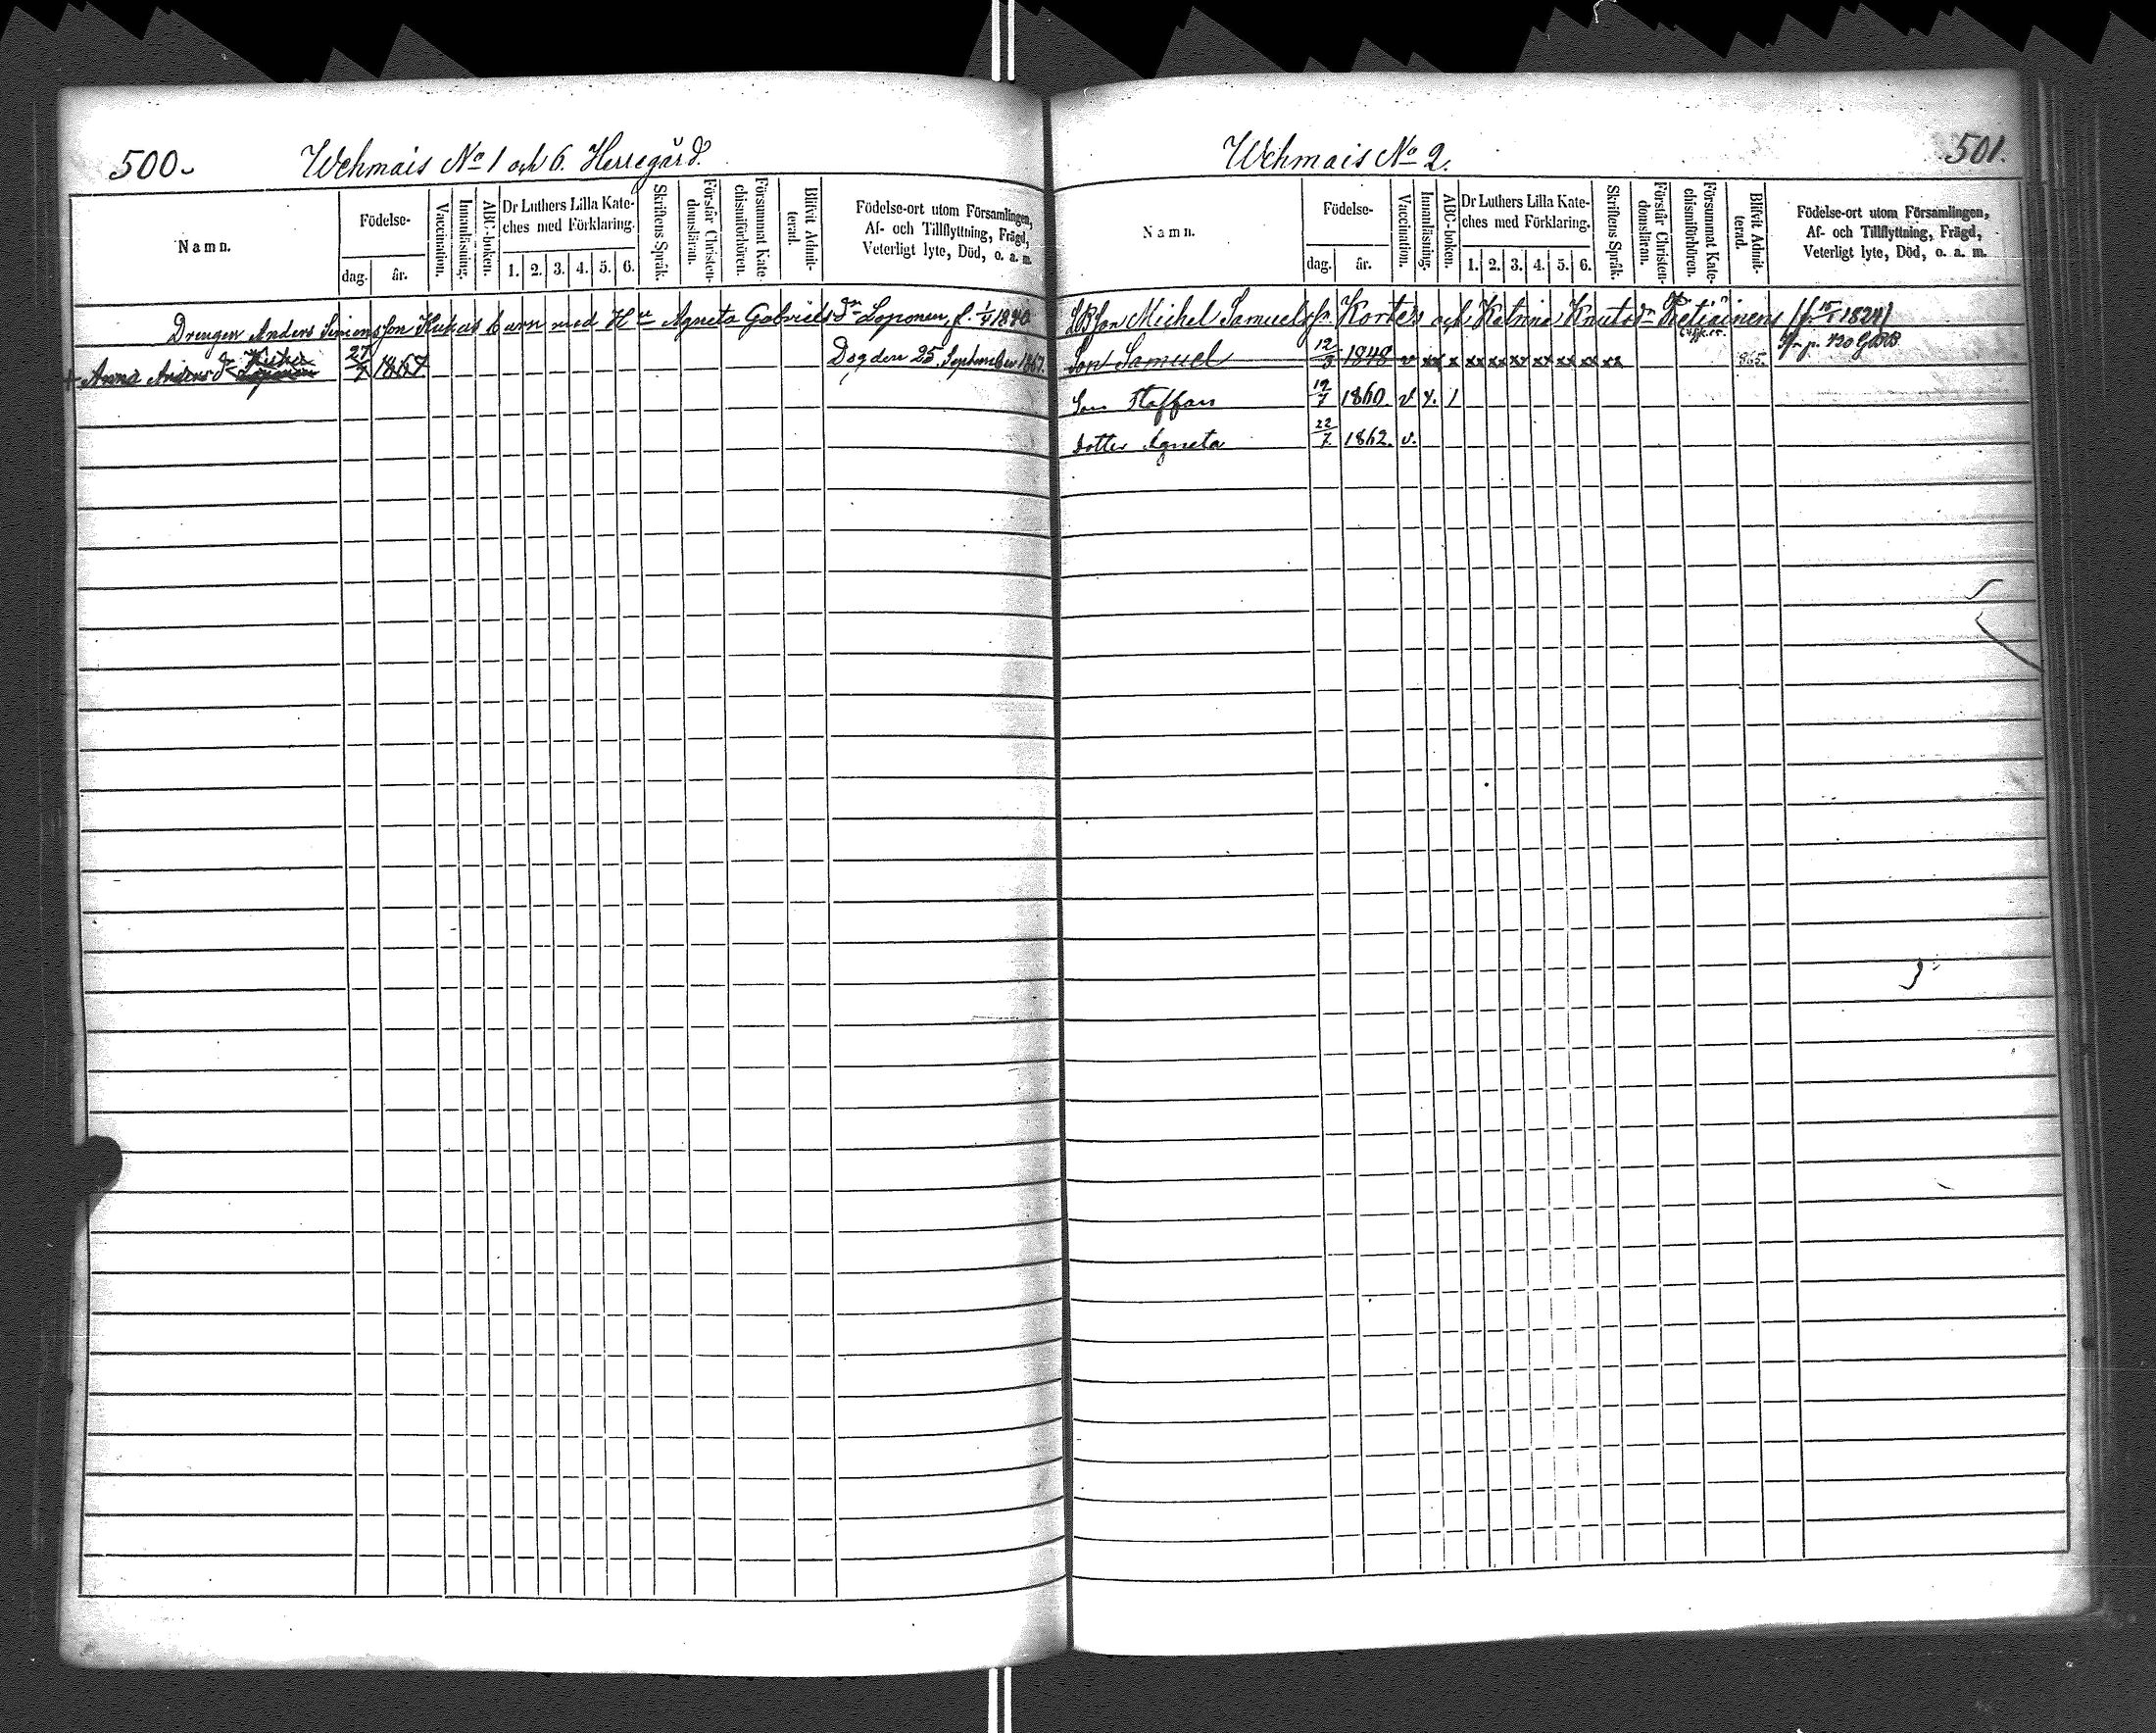 500.
Wehmais No 1 och 6. Herregård.
Namn.
Födelse-
dag.
år.
Vaccination.
Innanläsning.
ABC-boken.
Dr Luthers Lilla Kate-
ches med Förklaring.
1. 2. 3. 4. 5. 6.
Skriftens Språk.
Förstår Christen-
domsläran.
Försummat Kate-
chismiförhören.
Blifvit Admit-
terad.
Födelse-ort utom Församlingen,
Af- och Tillflyttning, Frägd,
Veterligt lyte, Död, o. a. m.
Drengen Anders Simonsson Kukas barn med Hu Agneta Gabriels dr Loponen, f. 1/4 1840
+ Anna Anders dr 27/7 1867 Dog den 25 September 1867.
501.
Wehmais No 2.
Namn.
Födelse-
dag.
år.
Vaccination.
Innanläsning.
ABC-boken.
Dr Luthers Lilla Kate-
ches med Förklaring.
1. 2. 3. 4. 5. 6.
Skriftens Språk.
Förstår Christen-
domsläran.
Försummat Kate-
chismiförhören.
Blifvit Admit-
terad.
Födelse-ort utom Församlingen,
Af- och Tillflyttning, Frägd,
Veterligt lyte, Död, o. a. m.
Michel Samuels sn Korten och Katrina Knuts dr (f. 15/1 1824)
Son Samuel 12/3 1848 v xx x xx xx xx xx xx xx xx 865.
Son Staffan 19/7 1860. v x. 1
Dotter Agneta 22/7 1862. v.